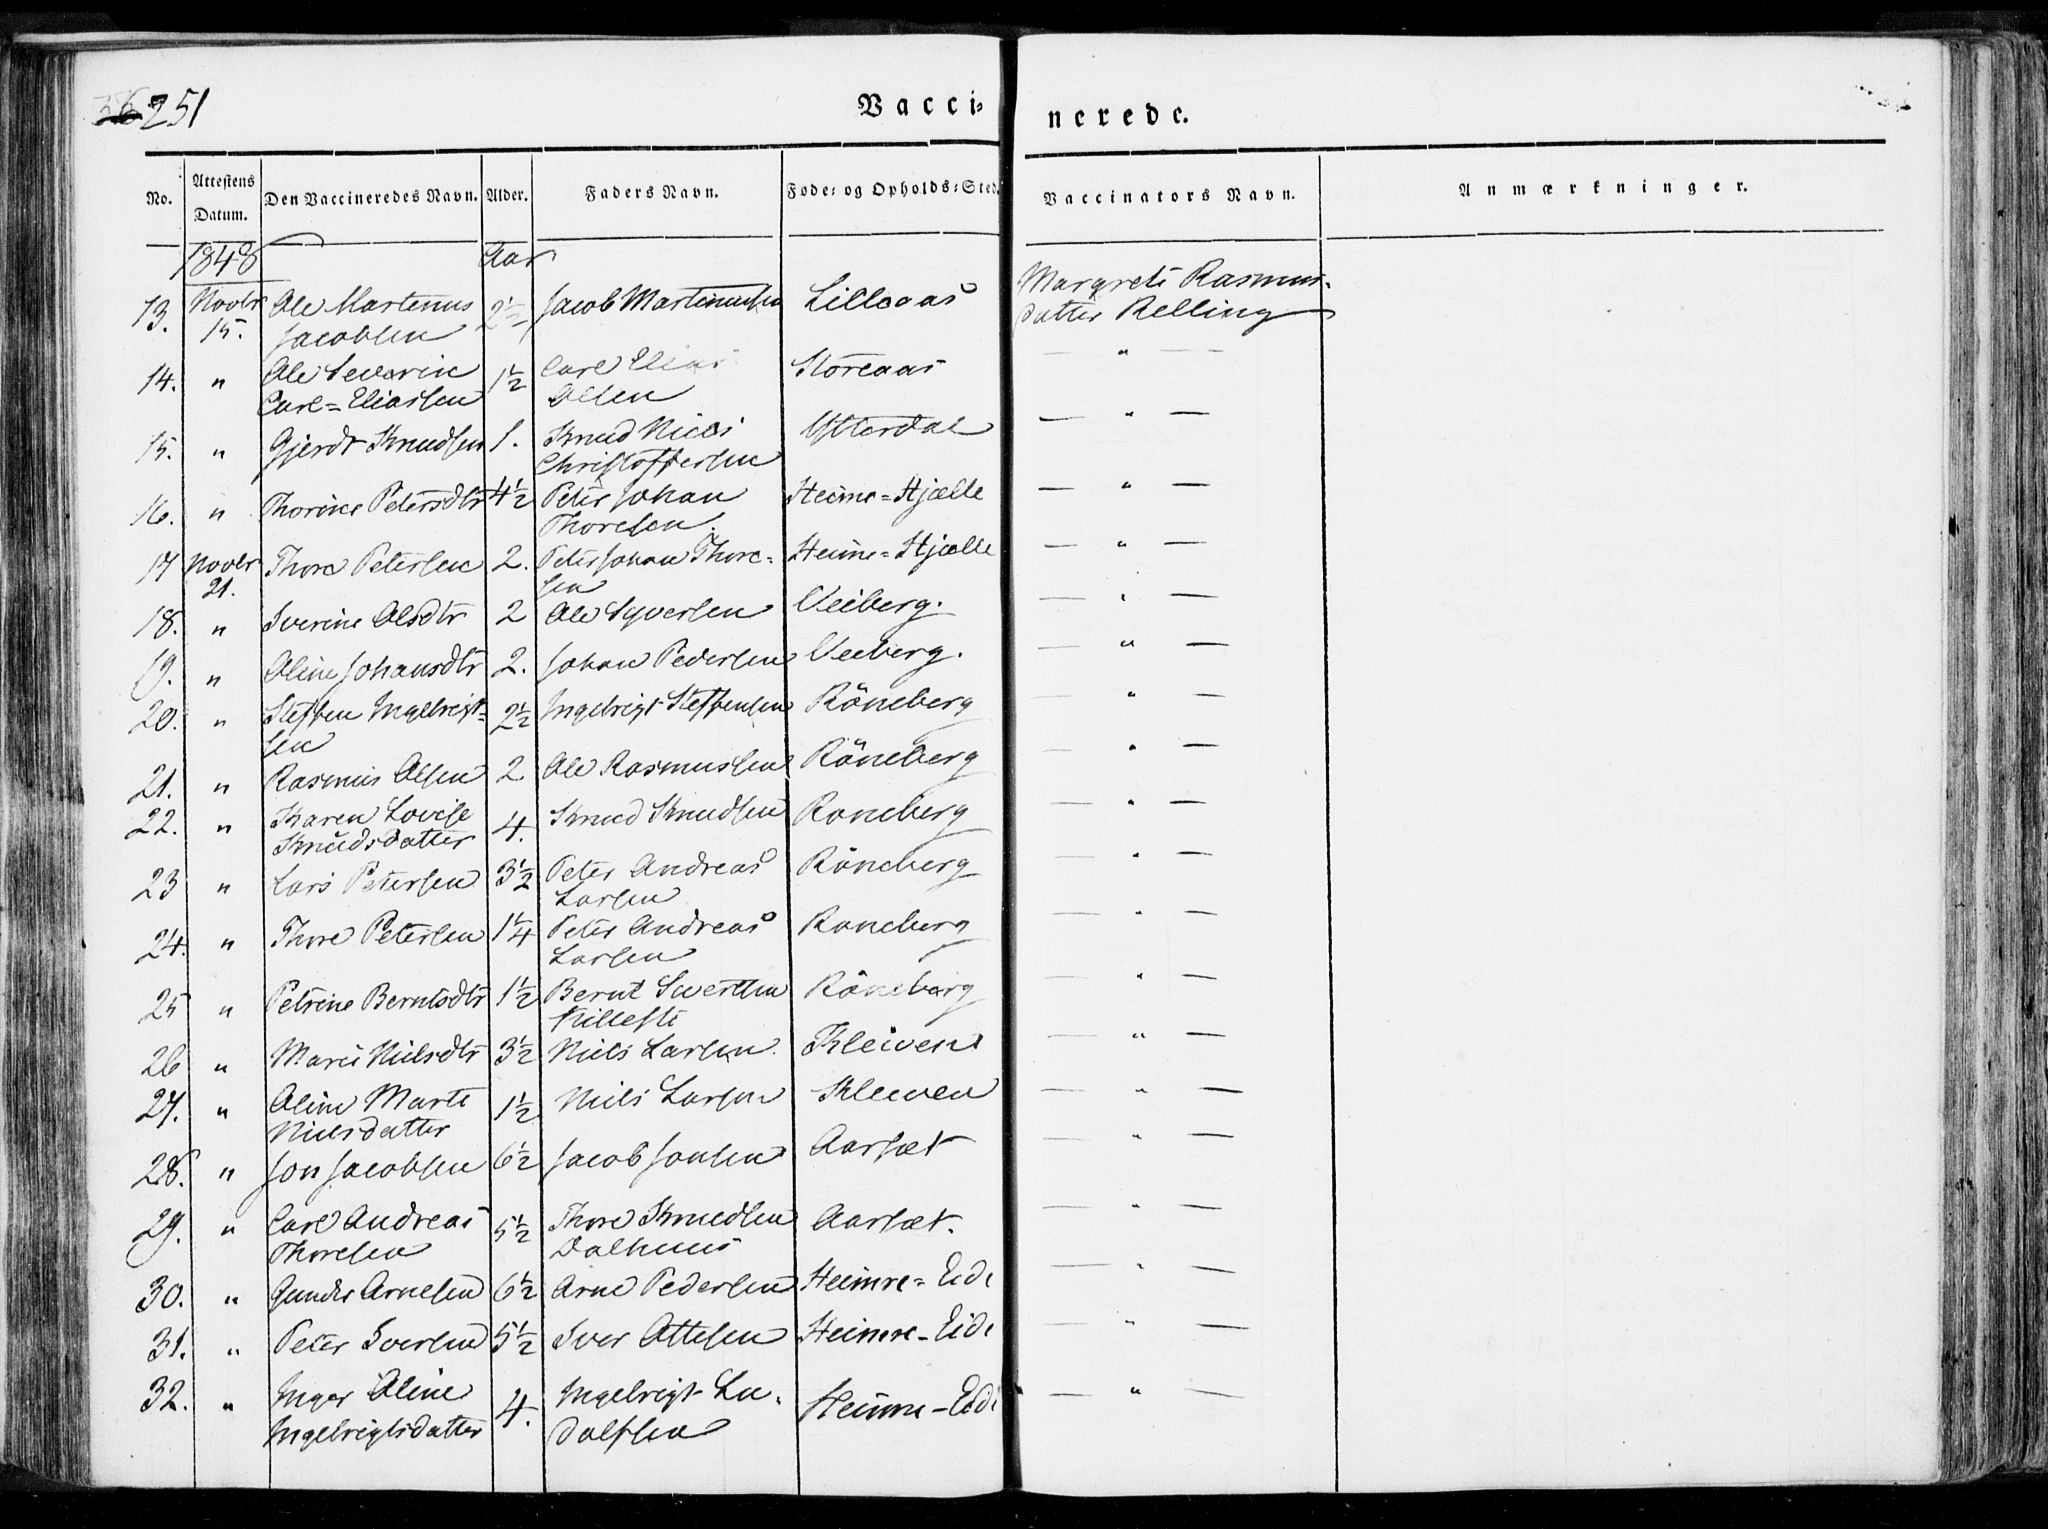 251
Vacci-
nerede.
No. Attestens Datum. Den Vaccineredes Navn. Alder. Faders Navn. Føde- og Opholds-Sted. Vaccinators Navn. Anmærkninger.
1848 Aar
13. Novbr 15. Ole Martinus Jacobsen 2½ Jacob Martinussen Lilleaas Margrete Rasmus-
datter Relling
14. " Ole Severin Carl=Eliassen 1½ Carl Elias Olsen Storeaas — " —
15. " Gjerdt Knudsen 1. Knud Niels Christoffersen Ytterdal — " —
16. " Thorine Petersdtr 4½ Peter Johan Thoresen. Heime=Hjelle — " —
17 Novbr 21. Thore Petersen 2. Peter Johan Thore-
sen Heime=Hjelle — " —
18. " Iverine Olsdtr 2 Ole Syversen Veiberg. — " —
19. " Oline Johansdtr 2. Johan Pedersen Veiberg. — " —
20. " Steffen Ingebrigt-
sen 2½ Ingebrigt Steffensen Röneberg — " —
21. " Rasmus Olsen 2 Ole Rasmussen Röneberg — " —
22. " Karen Lovise Knudsdatter 4. Knud Knudsen Roneberg — " —
23 " Lars Petersen 3½ Peter Andreas Larsen Röneberg — " —
24. " Thore Petersen 1¼ Peter Andreas Larsen Roneberg — " —
25 " Petrine Berntsdtr 1½ Bernt Röneberg — " —
26 " Marie Nielsdtr 3½ Niels Larsen Kleiven — " —
27. " Oline Marte Nielsdatter 1½ Niels Larsen Kleiven — " —
28. " Jon Jacobsen 6½ Jacob Jonsen Aarsæt — " —
29. " Carl Andreas Thoresen 5½ Thore Knudsen Dalhuus Aarsæt. — " —
30. " Gunder Arnesen 6½ Arne Pedersen Heimre=Eide — " —
31. " Peter Iversen 5½ Iver Ottesen Heimre-Eide — " —
32. " Inger Oline Ingebrigtsdatter 4. Ingebrigt Lu-
dolfsen Heimre-Eide — " —